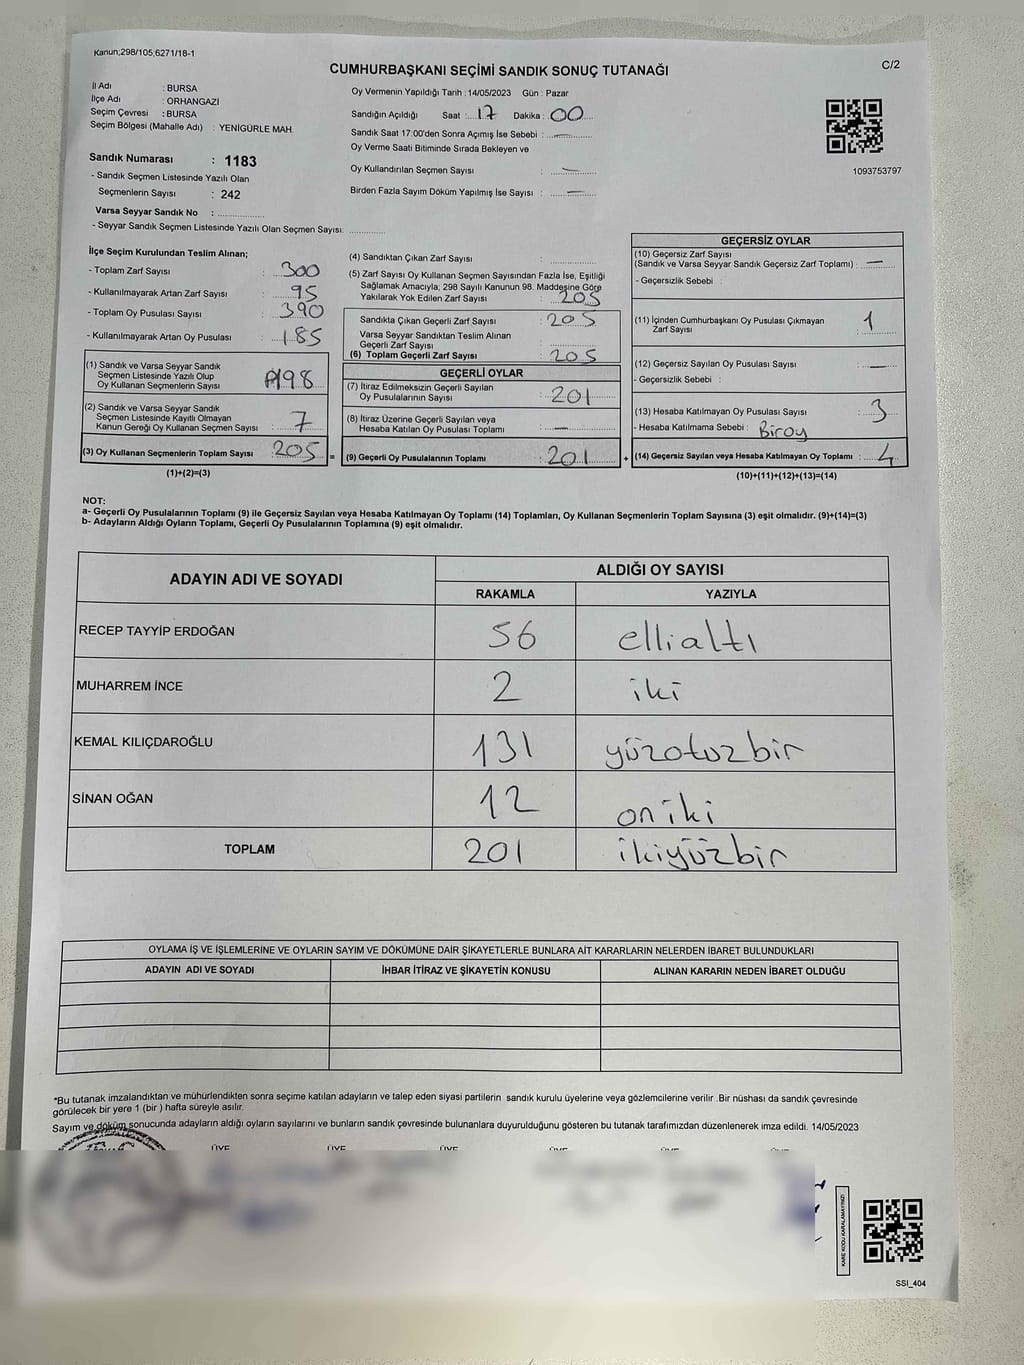 Kanun;298/105,6271/18-1
C/2
CUMHURBAŞKANI SEÇİMİ SANDIK SONUÇ TUTANAĞI
İl Adı : BURSA
İlçe Adı : ORHANGAZİ
Seçim Çevresi : BURSA
Seçim Bölgesi (Mahalle Adı) : YENİGÜRLE MAH.
Sandık Numarası : 1183
- Sandık Seçmen Listesinde Yazılı Olan
Seçmenlerin Sayısı : 242
Varsa Seyyar Sandık No : ................
- Seyyar Sandık Seçmen Listesinde Yazılı Olan Seçmen Sayısı: ............
Oy Vermenin Yapıldığı Tarih : 14/05/2023 Gün : Pazar
Sandığın Açıldığı Saat : 17 Dakika : 00
Sandık Saat 17:00'den Sonra Açımış İse Sebebi : —
Oy Verme Saati Bitiminde Sırada Bekleyen ve
Oy Kullandırılan Seçmen Sayısı : —
Birden Fazla Sayım Döküm Yapılmış İse Sayısı : —
1093753797
İlçe Seçim Kurulundan Teslim Alınan;
- Toplam Zarf Sayısı : 300
- Kullanılmayarak Artan Zarf Sayısı : 95
- Toplam Oy Pusulası Sayısı : 390
- Kullanılmayarak Artan Oy Pusulası : 185
(1) Sandık ve Varsa Seyyar Sandık
Seçmen Listesinde Yazılı Olup
Oy Kullanan Seçmenlerin Sayısı 198
(2) Sandık ve Varsa Seyyar Sandık
Seçmen Listesinde Kayıtlı Olmayan
Kanun Gereği Oy Kullanan Seçmen Sayısı : 7
(3) Oy Kullanan Seçmenlerin Toplam Sayısı : 205 =
(1)+(2)=(3)
(4) Sandıktan Çıkan Zarf Sayısı :
(5) Zarf Sayısı Oy Kullanan Seçmen Sayısından Fazla İse, Eşitliği
Sağlamak Amacıyla; 298 Sayılı Kanunun 98. Maddesine Göre
Yakılarak Yok Edilen Zarf Sayısı : 205
Sandıkta Çıkan Geçerli Zarf Sayısı : 205
Varsa Seyyar Sandıktan Teslim Alınan
Geçerli Zarf Sayısı :
(6) Toplam Geçerli Zarf Sayısı : 205
GEÇERLİ OYLAR
(7) İtiraz Edilmeksizin Geçerli Sayılan
Oy Pusulalarının Sayısı : 201
(8) İtiraz Üzerine Geçerli Sayılan veya
Hesaba Katılan Oy Pusulası Toplamı : —
(9) Geçerli Oy Pusulalarının Toplamı : 201 +
GEÇERSİZ OYLAR
(10) Geçersiz Zarf Sayısı
(Sandık ve Varsa Seyyar Sandık Geçersiz Zarf Toplamı) : —
- Geçersizlik Sebebi :
(11) İçinden Cumhurbaşkanı Oy Pusulası Çıkmayan
Zarf Sayısı : 1
(12) Geçersiz Sayılan Oy Pusulası Sayısı : —
- Geçersizlik Sebebi :
(13) Hesaba Katılmayan Oy Pusulası Sayısı : 3
- Hesaba Katılmama Sebebi : Biroy
(14) Geçersiz Sayılan veya Hesaba Katılmayan Oy Toplamı : 4
(10)+(11)+(12)+(13)=(14)
NOT:
a- Geçerli Oy Pusulalarının Toplamı (9) ile Geçersiz Sayılan veya Hesaba Katılmayan Oy Toplamı (14) Toplamları, Oy Kullanan Seçmenlerin Toplam Sayısına (3) eşit olmalıdır. (9)+(14)=(3)
b- Adayların Aldığı Oyların Toplamı, Geçerli Oy Pusulalarının Toplamına (9) eşit olmalıdır.
ADAYIN ADI VE SOYADI ALDIĞI OY SAYISI
RAKAMLA YAZIYLA
RECEP TAYYİP ERDOĞAN 56 ellialtı
MUHARREM İNCE 2 iki
KEMAL KILIÇDAROĞLU 131 yüzotuzbir
SİNAN OĞAN 12 oniki
TOPLAM 201 ikiyüzbir
OYLAMA İŞ VE İŞLEMLERİNE VE OYLARIN SAYIM VE DÖKÜMÜNE DAİR ŞİKAYETLERLE BUNLARA AİT KARARLARIN NELERDEN İBARET BULUNDUKLARI
ADAYIN ADI VE SOYADI İHBAR İTİRAZ VE ŞİKAYETİN KONUSU ALINAN KARARIN NEDEN İBARET OLDUĞU
*Bu tutanak imzalandıktan ve mühürlendikten sonra seçime katılan adayların ve talep eden siyasi partilerin sandık kurulu üyelerine veya gözlemcilerine verilir .Bir nüshası da sandık çevresinde
görülecek bir yere 1 (bir ) hafta süreyle asılır.
Sayım ve döküm sonucunda adayların aldığı oyların sayılarını ve bunların sandık çevresinde bulunanlara duyurulduğunu gösteren bu tutanak tarafımızdan düzenlenerek imza edildi. 14/05/2023
ÜYE ÜYE ÜYE
KARE KODU KARALAMAYINIZ!
SSI_404